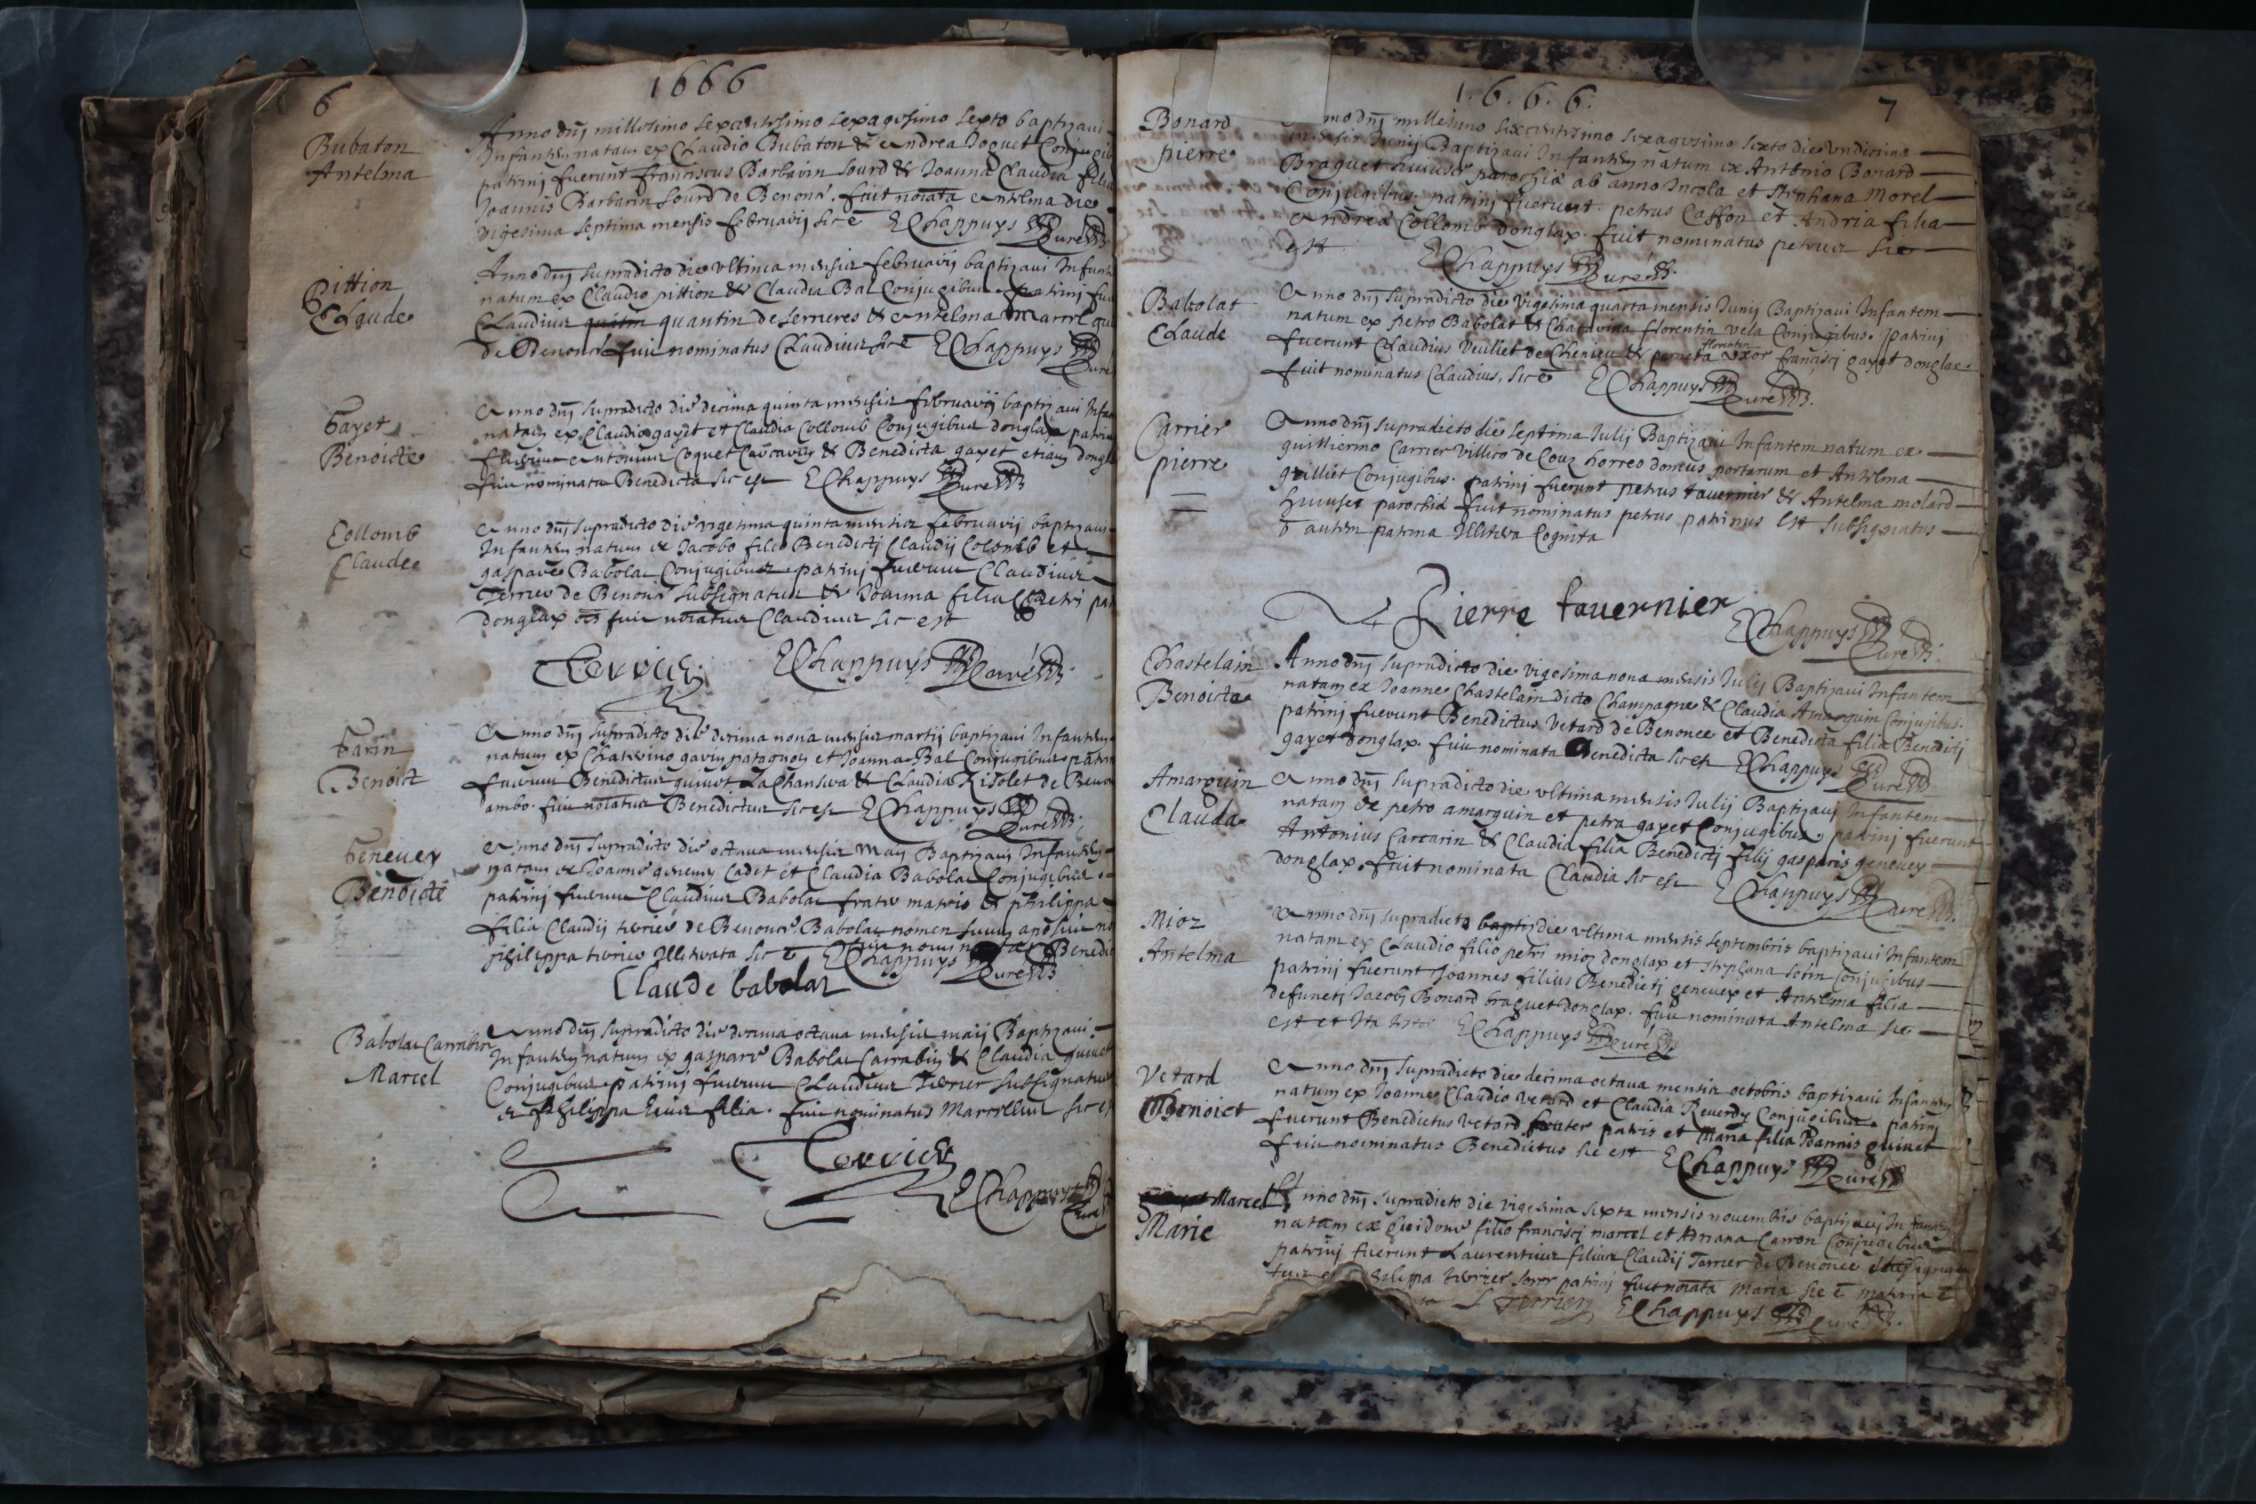 6
1666
Bubaton
Antelma
Anno dnj millesimo sexcentesimo sexagesimo sexto baptizavi
Infantem natam ex Claudio Bubaton & Andrea Joguet Conjugib
patrinj fuerunt franciscus Barbarin Lourd & Joanna Claudia filia
Joannis Barbarin Lourd de Benonce. fuit noiata Antelma die
vigesima septima mensis februarij sic e EChappuys Curé
Pittion
Claude
Anno dnj supradicto die vltima mensis februarij baptizavi Infant
natum ex Claudio pittion & Claudia Bal Conjugibus. patrinj fue
Claudius quantin de Serrieres & Antelma Marcel
de Benonce fuit nominatus Claudius sic e EChappuys Curé
Gayet
Benoicte
Anno dnj supradicto die decima quinta mensis februarij baptizavi Infan
natam ex Claudio gayet et Claudia Collomb Conjugibus donglax patrin
fuerunt Antonius Coquet Carcariz & Benedicta gayet etiam dongla
fuit nominata Benedicta sic est EChappuys Curé
Collomb
Claude
Anno dnj supradicto die vigesima quinta mensis februarij baptizavi
Infantem natum ex Jacobo filio Benedictj Claudij Colomb et
gaspare Babolat Conjugibus. patrinj fuerunt Claudius
Terrier de Benonce subsignatus & Joanna filia petri
donglax fuit noiatus Claudius sic est
Terrier EChappuys Curé
Garin
Benoict
Anno dnj supradicto die decima nona mensis martij baptizavi Infantem
natum ex Chatherino garin patagnon et Joanna Bal Conjugibus patrin
fuerunt Benedictus guinet & Claudia Risolet de Benon
ambo. fuit noiatus Benedictus sic est EChappuys Curé
Genevey
Benoicte
Anno dnj supradicto die octava mensis Maij Baptizavj Infantem
natam ex Joanne genevey Cadet et Claudia Babolat Conjugibus
patrinj fuerunt Claudius Babolat frater matris & philippa
filia Claudij terrier de Benonce Babolat nomen suum
philippa terrier Illiterata sic e EChappuys Curé Benedic
Claude babolat
Babolat Carrabin
Marcel
Anno dnj supradicto die decima octava mensis maij Baptizavi
Infantem natum ex gaspare Babolat Carrabin & Claudia guinet
Conjugibus patrinj fuerunt Claudius Terrier subsignatus
& philippa eius filia. fuit nominatus Marcellus sic est
Terrier
EChappuys Curé
1.6.6.6.
7
Bonard
pierre
mo dnj millesimo sexcentesimo sexagesimo sexto die vndecima
mensis Junij Baptizavi Infantem natum ex Anthonio Bonard
Braguet huiusce parochiæ ab anno Incola et Stephana Morel
Conjugibus. patrinj fuerunt. petrus Caffon et Andria filia
Andrea Collomb donglax. fuit nominatus petrus sic
est EChappuys Curé
Babolat
Claude
Anno dnj supradicto die vigesima quarta mensis Junij Baptizavi Infantem
natum ex petro Babolat & Chaterina florentin vela Conjugibus. patrinj
fuerunt Claudius Veuliet de Chenieu & perneta florentin vxor francisci gayet donglax
fuit nominatus Claudius, sic e EChappuys Curé
Carrier
pierre
Anno dnj supradicto die septima Julij Baptizavi Infantem natum ex
guilliermo Carrier Villico de Couz horreo domus portarum et Antelma
guilliet Conjugibus. patrinj fuerunt petrus tavernier & Antelma molard
huiusce parochiæ fuit nominatus petrus patrinus est subsignatus
autem patrina Illitera Cognita
Pierre tavernier
EChappuys Curé
Chastelain
Benoicte
Anno dnj supradicto die vigesima nona mensis Julij Baptizavi Infantem
natam ex Joanne Chastelain dicto Champagne & Claudia Amarguin Conjugibus.
patrinj fuerunt Benedictus Vetard de Benonce et Benedicta filia Benedictj
gayet donglax. fuit nominata Benedicta sic est EChappuys Curé
Amarguin
Clauda
Anno dnj supradicto die vltima mensis Julij Baptizavj Infantem
natam ex petro amarguin et petra gayet Conjugibus, patrinj fuerunt
Antonius Carcarin & Claudia filia Benedictj filij gasparis genevey
donglax. fuit nominata Claudia sic est EChappuys Curé
Mioz
Antelma
Anno dnj supradicto die vltima mensis septembris baptizavi Infantem
natam ex Claudio filio petri mioz donglax et Stephana serin Conjugibus
patrinj fuerunt Joannes filius Benedictj genevey et Antelma filia
defunctj Jacobj Bonard braguet donglax. fuit nominata Antelma sic
est et Ita EChappuys Curé
Vetard
Benoict
Anno dnj supradicto die decima octava mensis octobris baptizavi Infantem
natum ex Joanne Claudio Vetard et Claudia Reverdy Conjugibus. patrinj
fuerunt Benedictus Vetard frater patris et Maria filia Joannis guinet
fuit nominatus Benedictus sic est EChappuys Curé
Marcel
Marie
Anno dnj supradicto die vigesima sexta mensis novembris baptizavj Infantem
natam ex Guidone filio franciscj marcel et Adriana Carron Conjugibus
patrinj fuerunt Laurentius filius Claudij Terrier de Benonce subsigna
tus et philippa terrier soror patrinj fuit noiata Maria sic e
L Terrier EChappuys Curé